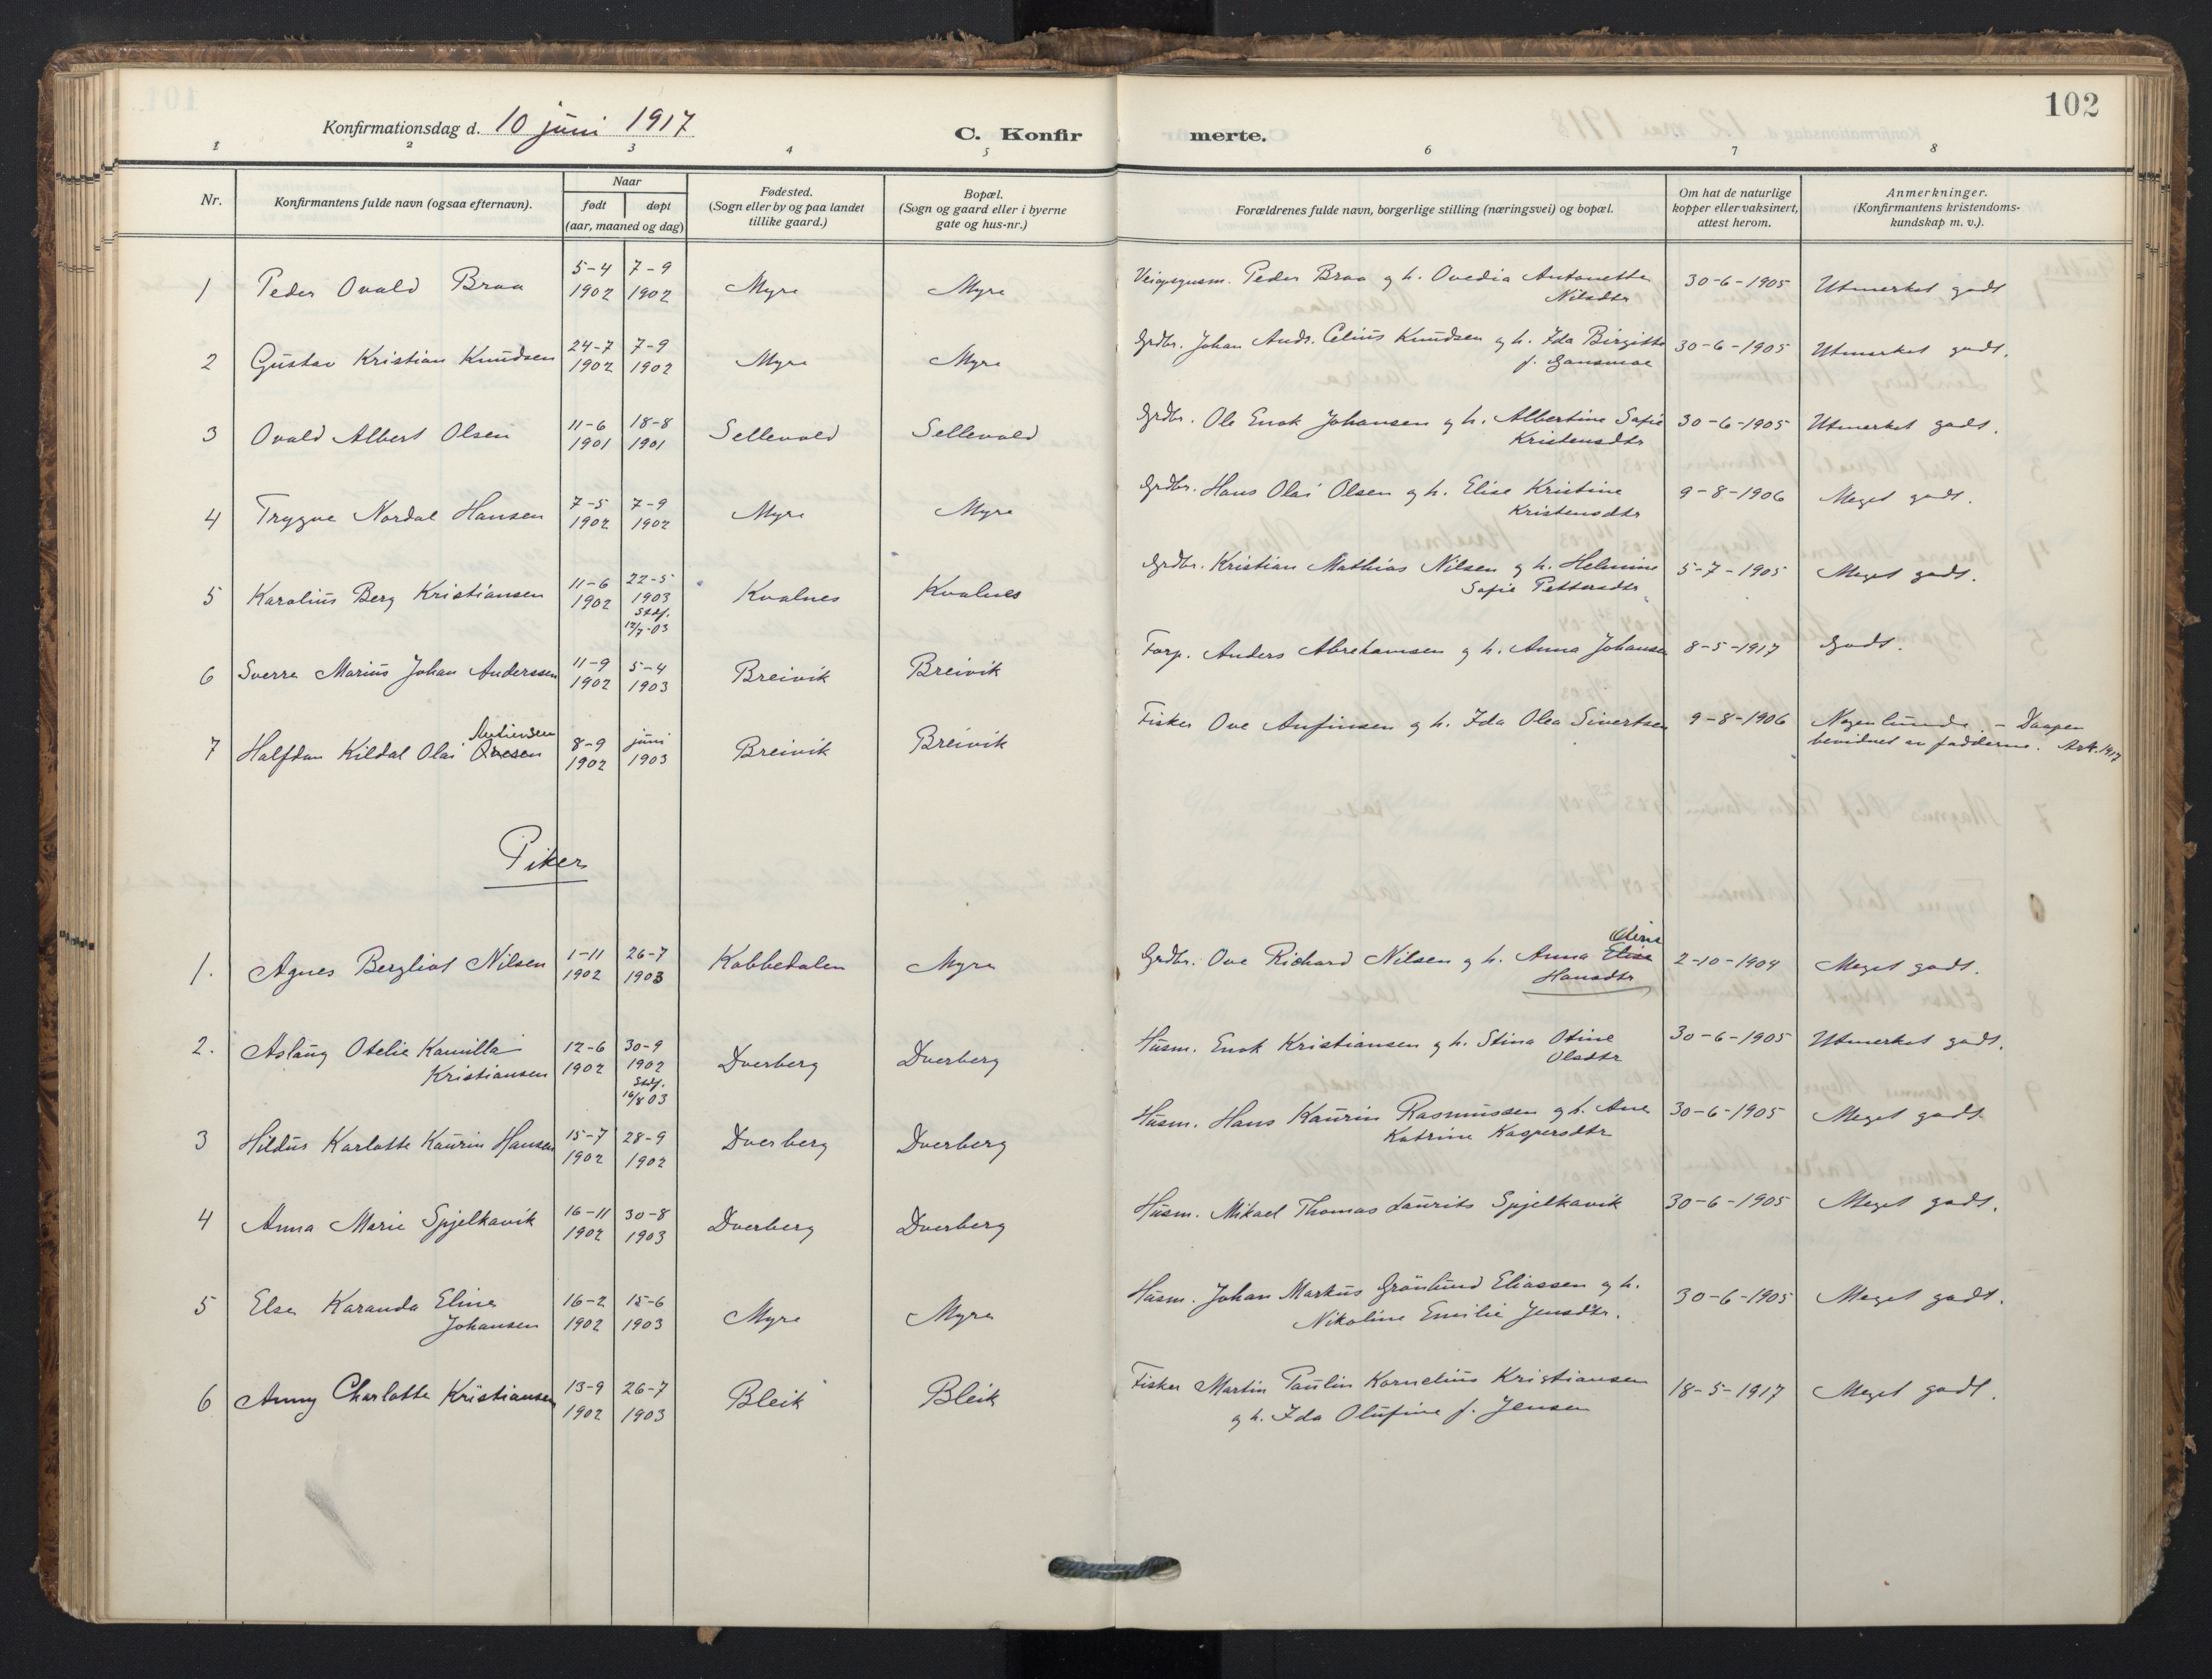 102
Konfirmationsdag d. 10 juni 1917
C. Konfirmerte.
1 2 3 4 5 6 7 8
Nr.
Konfirmantens fulde navn (ogsaa efternavn).
Naar
født døpt
(aar, maaned og dag)
Fødested.
(Sogn eller by og paa landet
tillike gaard.)
Bopæl.
(Sogn og gaard eller i byerne
gate og hus-nr.)
Forældrenes fulde navn, borgerlige stilling (næringsvei) og bopæl.
Om hat de naturlige
kopper eller vaksinert,
attest herom.
Anmerkninger.
(Konfirmantens kristendoms-
kundskap m. v.).
1 Peder Ovald Braa 5-4 1902 7-9 1902 Myre Myre Peder Braa og h. Ovedia Antonette Nilsdtr 30-6-1905 Utmerket godt
2 Gustav Kristian Knudsen 24-7 1902 7-9 1902 Myre Myre Grdbr. Johan Andr. Celius Knudsen og h. Ida Birgitte f. Gansmoe 30-6-1905 Utmerket godt.
3 Ovald Albert Olsen 11-6 1901 18-8 1901 Sellevold Sellevold Grdbr. Ole Enok Johansen og h. Albertine Sofie Kristensdtr 30-6-1905 Utmerket godt.
4 Trygve Nordal Hansen 7-5 1902 7-9 1902 Myre Myre Grdbr. Hans Olai Olsen og h. Elise Kristine Kristensdtr 9-8-1906 Meget godt.
5 Karolius Berg Kristiansen 11-6 1902 22-5 1903 Stdf. 12/7-03 Kvalnes Kvalnes Grdbr. Kristian Mathias Nilsen og h. Helmine Sofie Pettersdtr 5-7-1905 Meget godt.
6 Sverre Marius Johan Anderssen 11-9 1902 5-4 1903 Breivik Breivik Forp. Anders Abrehamsen og h. Anna Johansen 8-5-1917 Godt.
7 Halfdan Kildal Olai Ovesen 8-9 1902 juni 1903 Breivik Breivik Fisker Ove Anfinsen og h. Ida Olea Sivertsen 9-8-1906 Nogenlunde - Daapen
bevidnet av fadderne. 1917
Piker
1. Agnes Bergliot Nilsen 1-11 1902 26-7 1903 Kobbedalen Myre Grdbr. Ove Richard Nilsen og h. Anna Elise Hansdtr 2-10-1904 Meget godt.
2. Aslaug Otelie Kamilla Kristiansen 12-6 1902 30-9 1902 Stdf. 16/8 03 Dverberg Dverberg Husm. Enok Kristiansen og h. Stina Otine Olsdtr 30-6-1905 Utmerket godt.
3 Hildus Karlotte Kaurin Hansen 15-7 1902 28-9 1902 Dverberg Dverberg Husm. Hans Kaurin Rasmussen og h. Ane Katrine Kaspersdtr 30-6-1905 Meget godt
4 Anna Marie Spjelkavik 16-11 1902 30-8 1903 Dverberg Dverberg Husm. Mikael Thomas Laurits Spjelkavik 30-6-1905 Meget godt.
5 Else Karanda Eline Johansen 16-2 1902 15-6 1903 Myre Myre Husm. Johan Markus Grönlund Eliassen og h. Nikoline Emilie Jensdtr. 30-6-1905 Meget godt.
6 Anny Charlotte Kristiansen 13-9 1902 26-7 1903 Bleik Bleik Fisker Martin Paulin Kornelius Kristiansen og h. Ida Olufine f. Jensen 18-5-1917 Meget godt.